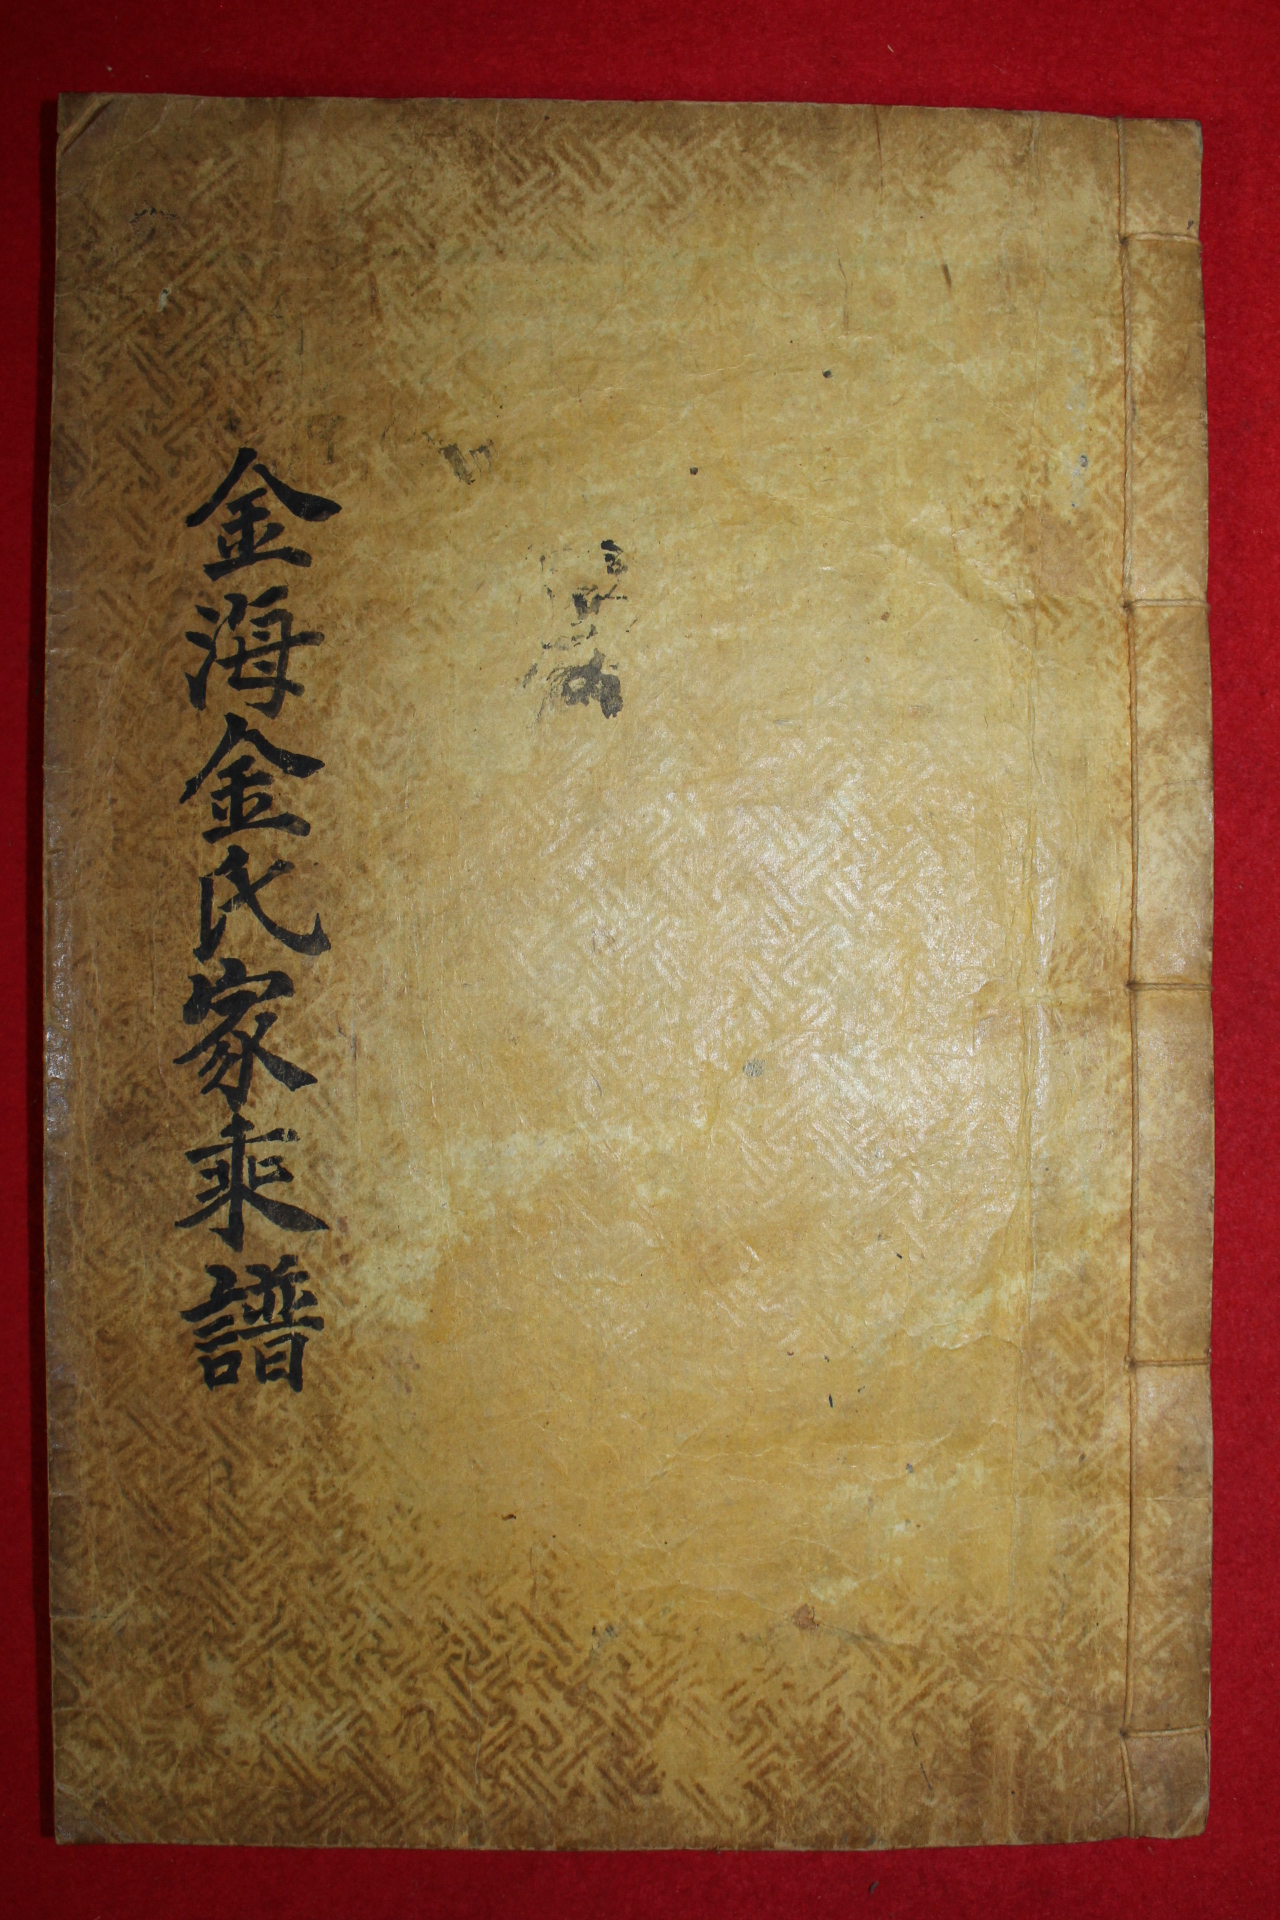 金海金氏家乘譜